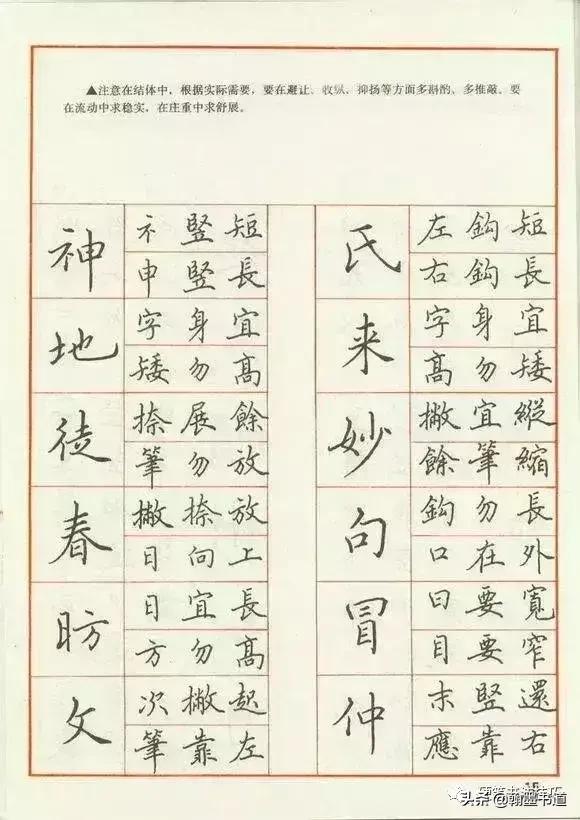 ▲注意在结体中，根据实际需要，要在避让、收纵、抑扬等方面多斟酌、多推敲。要
在流动中求稳实，在庄重中求舒展。
神
礻竪短
申竪長
地
字身宜
矮勿高
徒
捺展餘
筆勿放
春
撇捺放
日向上
昉
日宜長
方勿高
攵
次撇起
筆靠左
氏
左鈎短
右鈎長
来
字身宜
高勿矮
妙
撇宜縱
餘筆縮
句
鈎勿長
口在外
冒
曰要寬
目要窄
仲
末竪還
應靠右
15
头条@翰墨书道